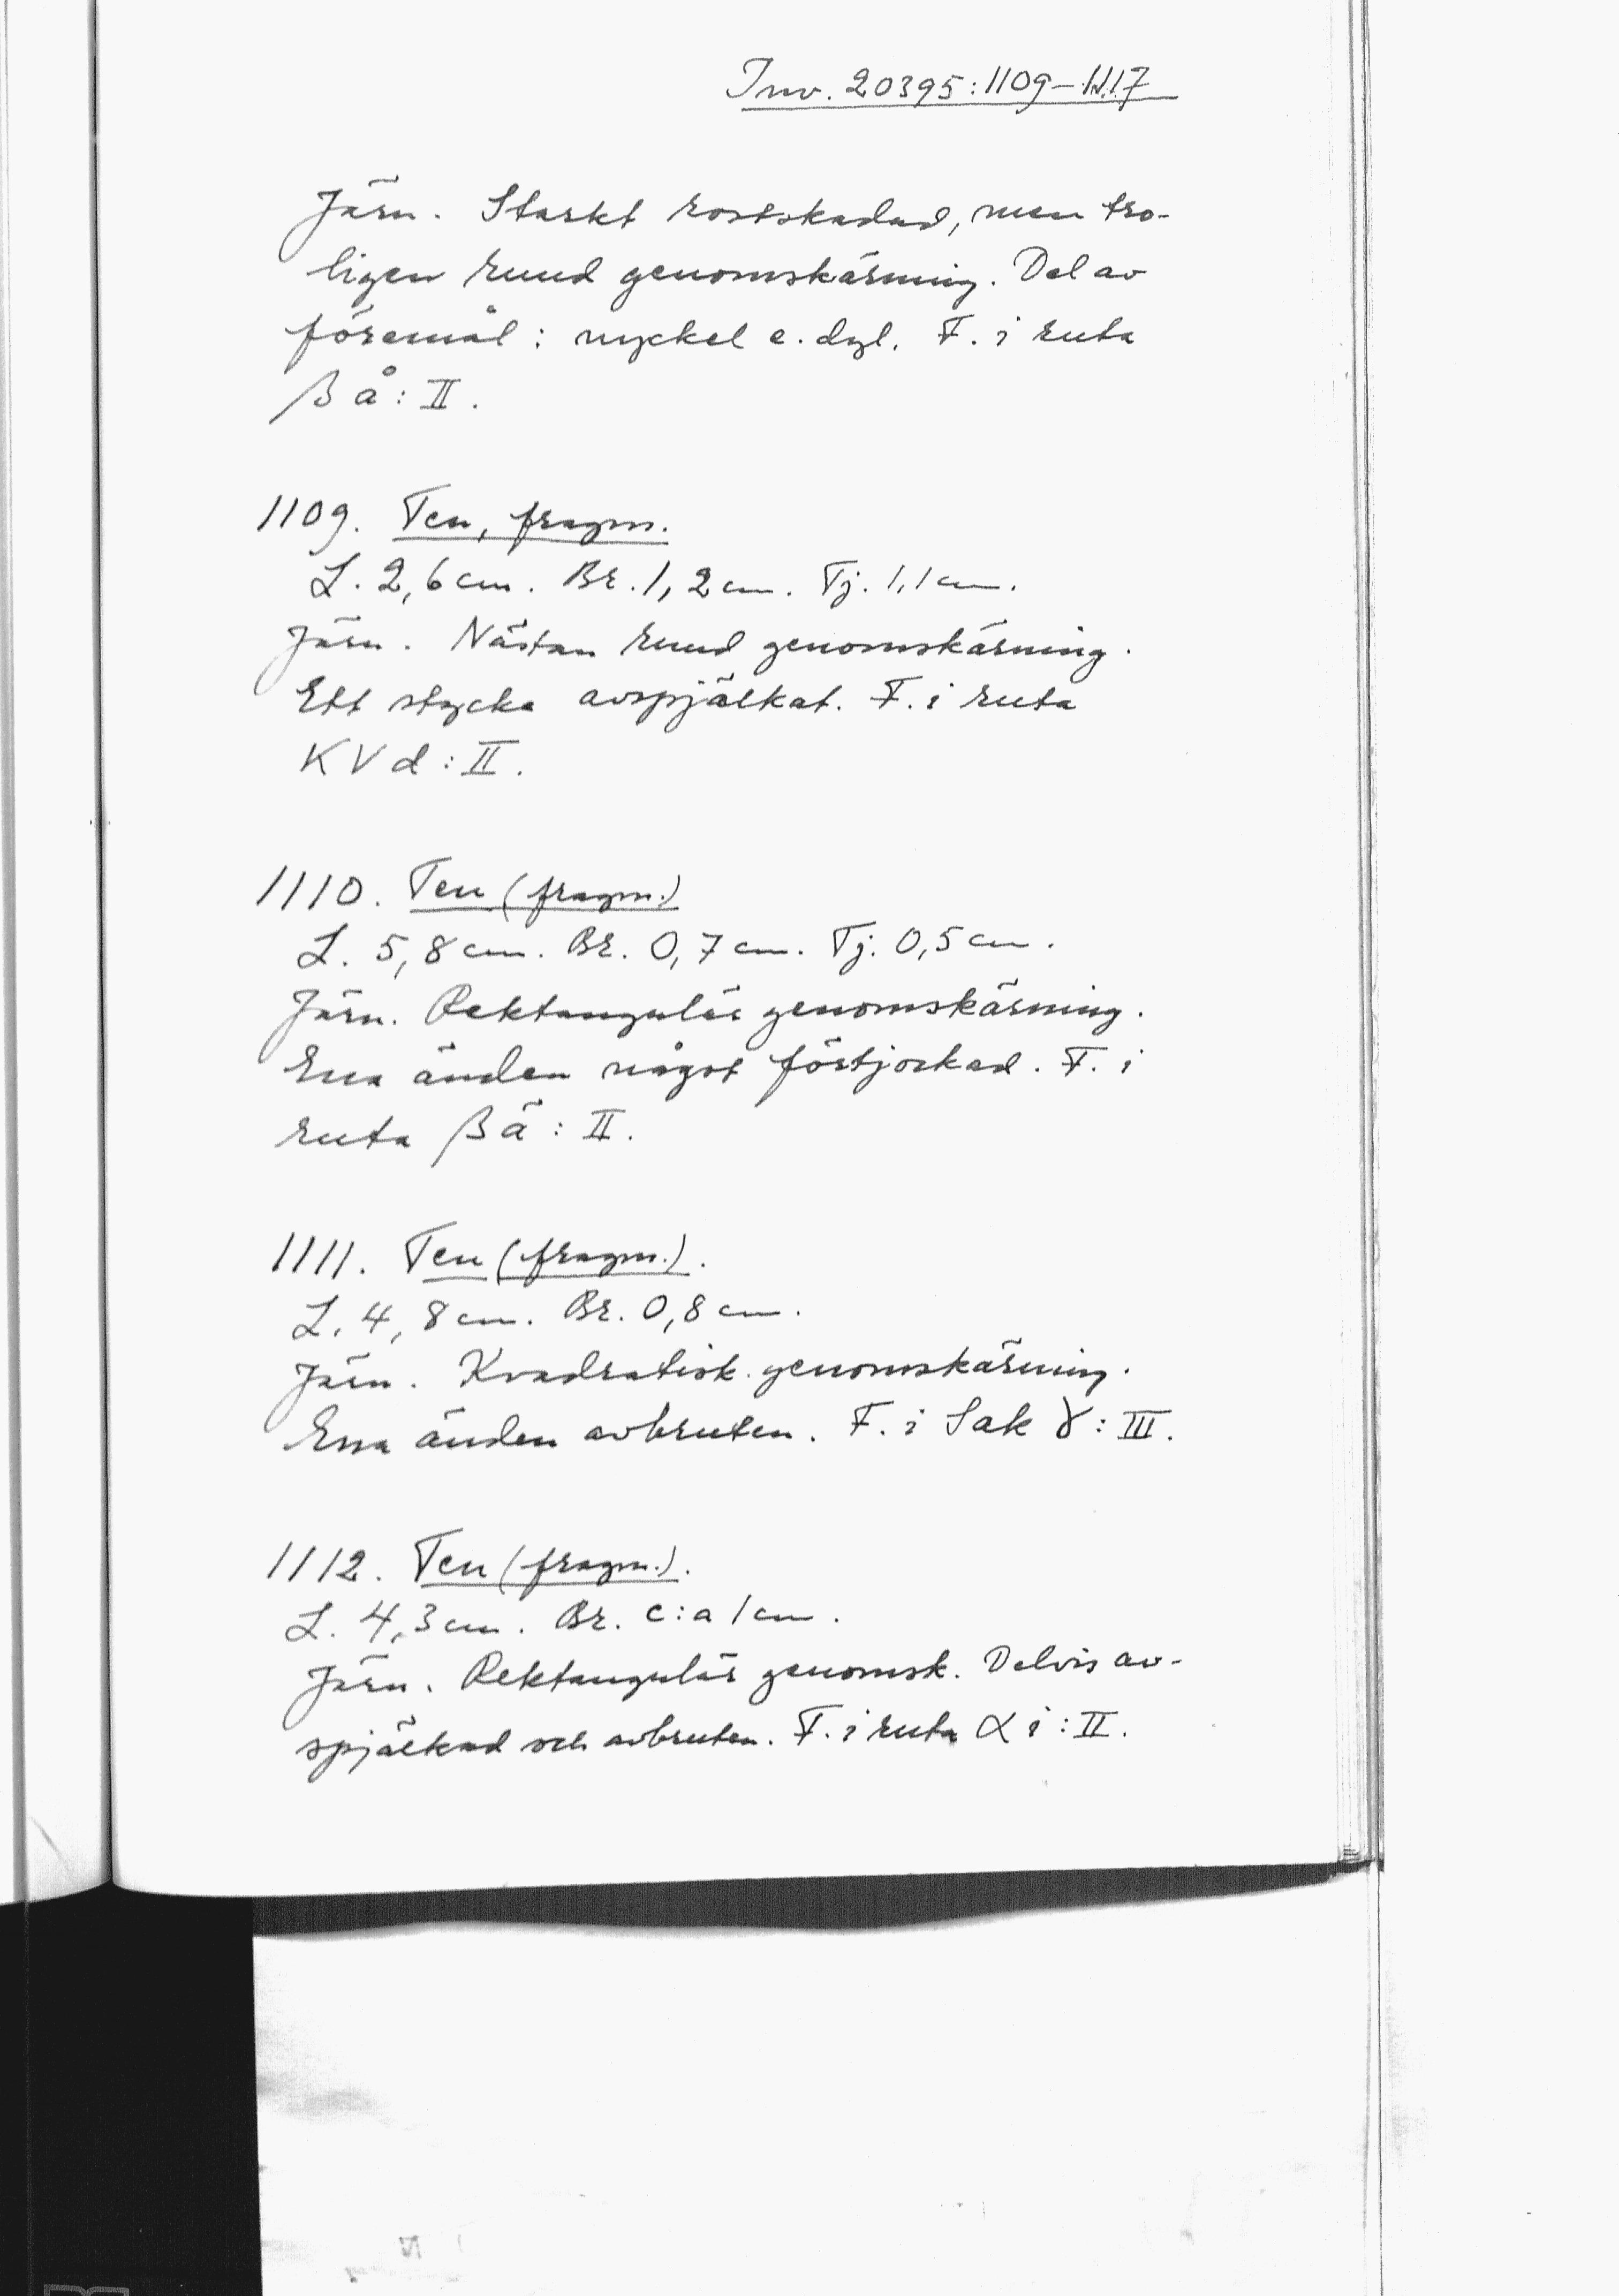 Inv. 20395:1109-1117
Järn. Starkt rostskadad, men tro-
ligen rund genomskärning. Del av
föremål: nyckel e. dyl. F. i ruta
β å: II.
1109. Ten, fragm.
L. 2,6 cm. Br. 1,2 cm. Tj. 1,1 cm.
Järn. Nästan rund genomskärning.
Ett stycke avspjälkat. F. i ruta
KV d: II.
1110. Ten (fragm.)
L. 5,8 cm. Br. 0,7 cm. Tj. 0,5 cm.
Järn. Rektangulär genomskärning.
Ena änden något förtjockad. F. i
ruta β ä: II.
1111. Ten (fragm.).
L. 4,8 cm. Br. 0,8 cm.
Järn. Kvadratisk genomskärning.
Ena änden avbruten. F. i Sak γ: III.
1112. Ten (fragm.).
L. 4,3 cm. Br. c:a 1 cm.
Järn. Rektangulär genomsk. Delvis av-
spjälkad och avbruten. F. i ruta α i: II.